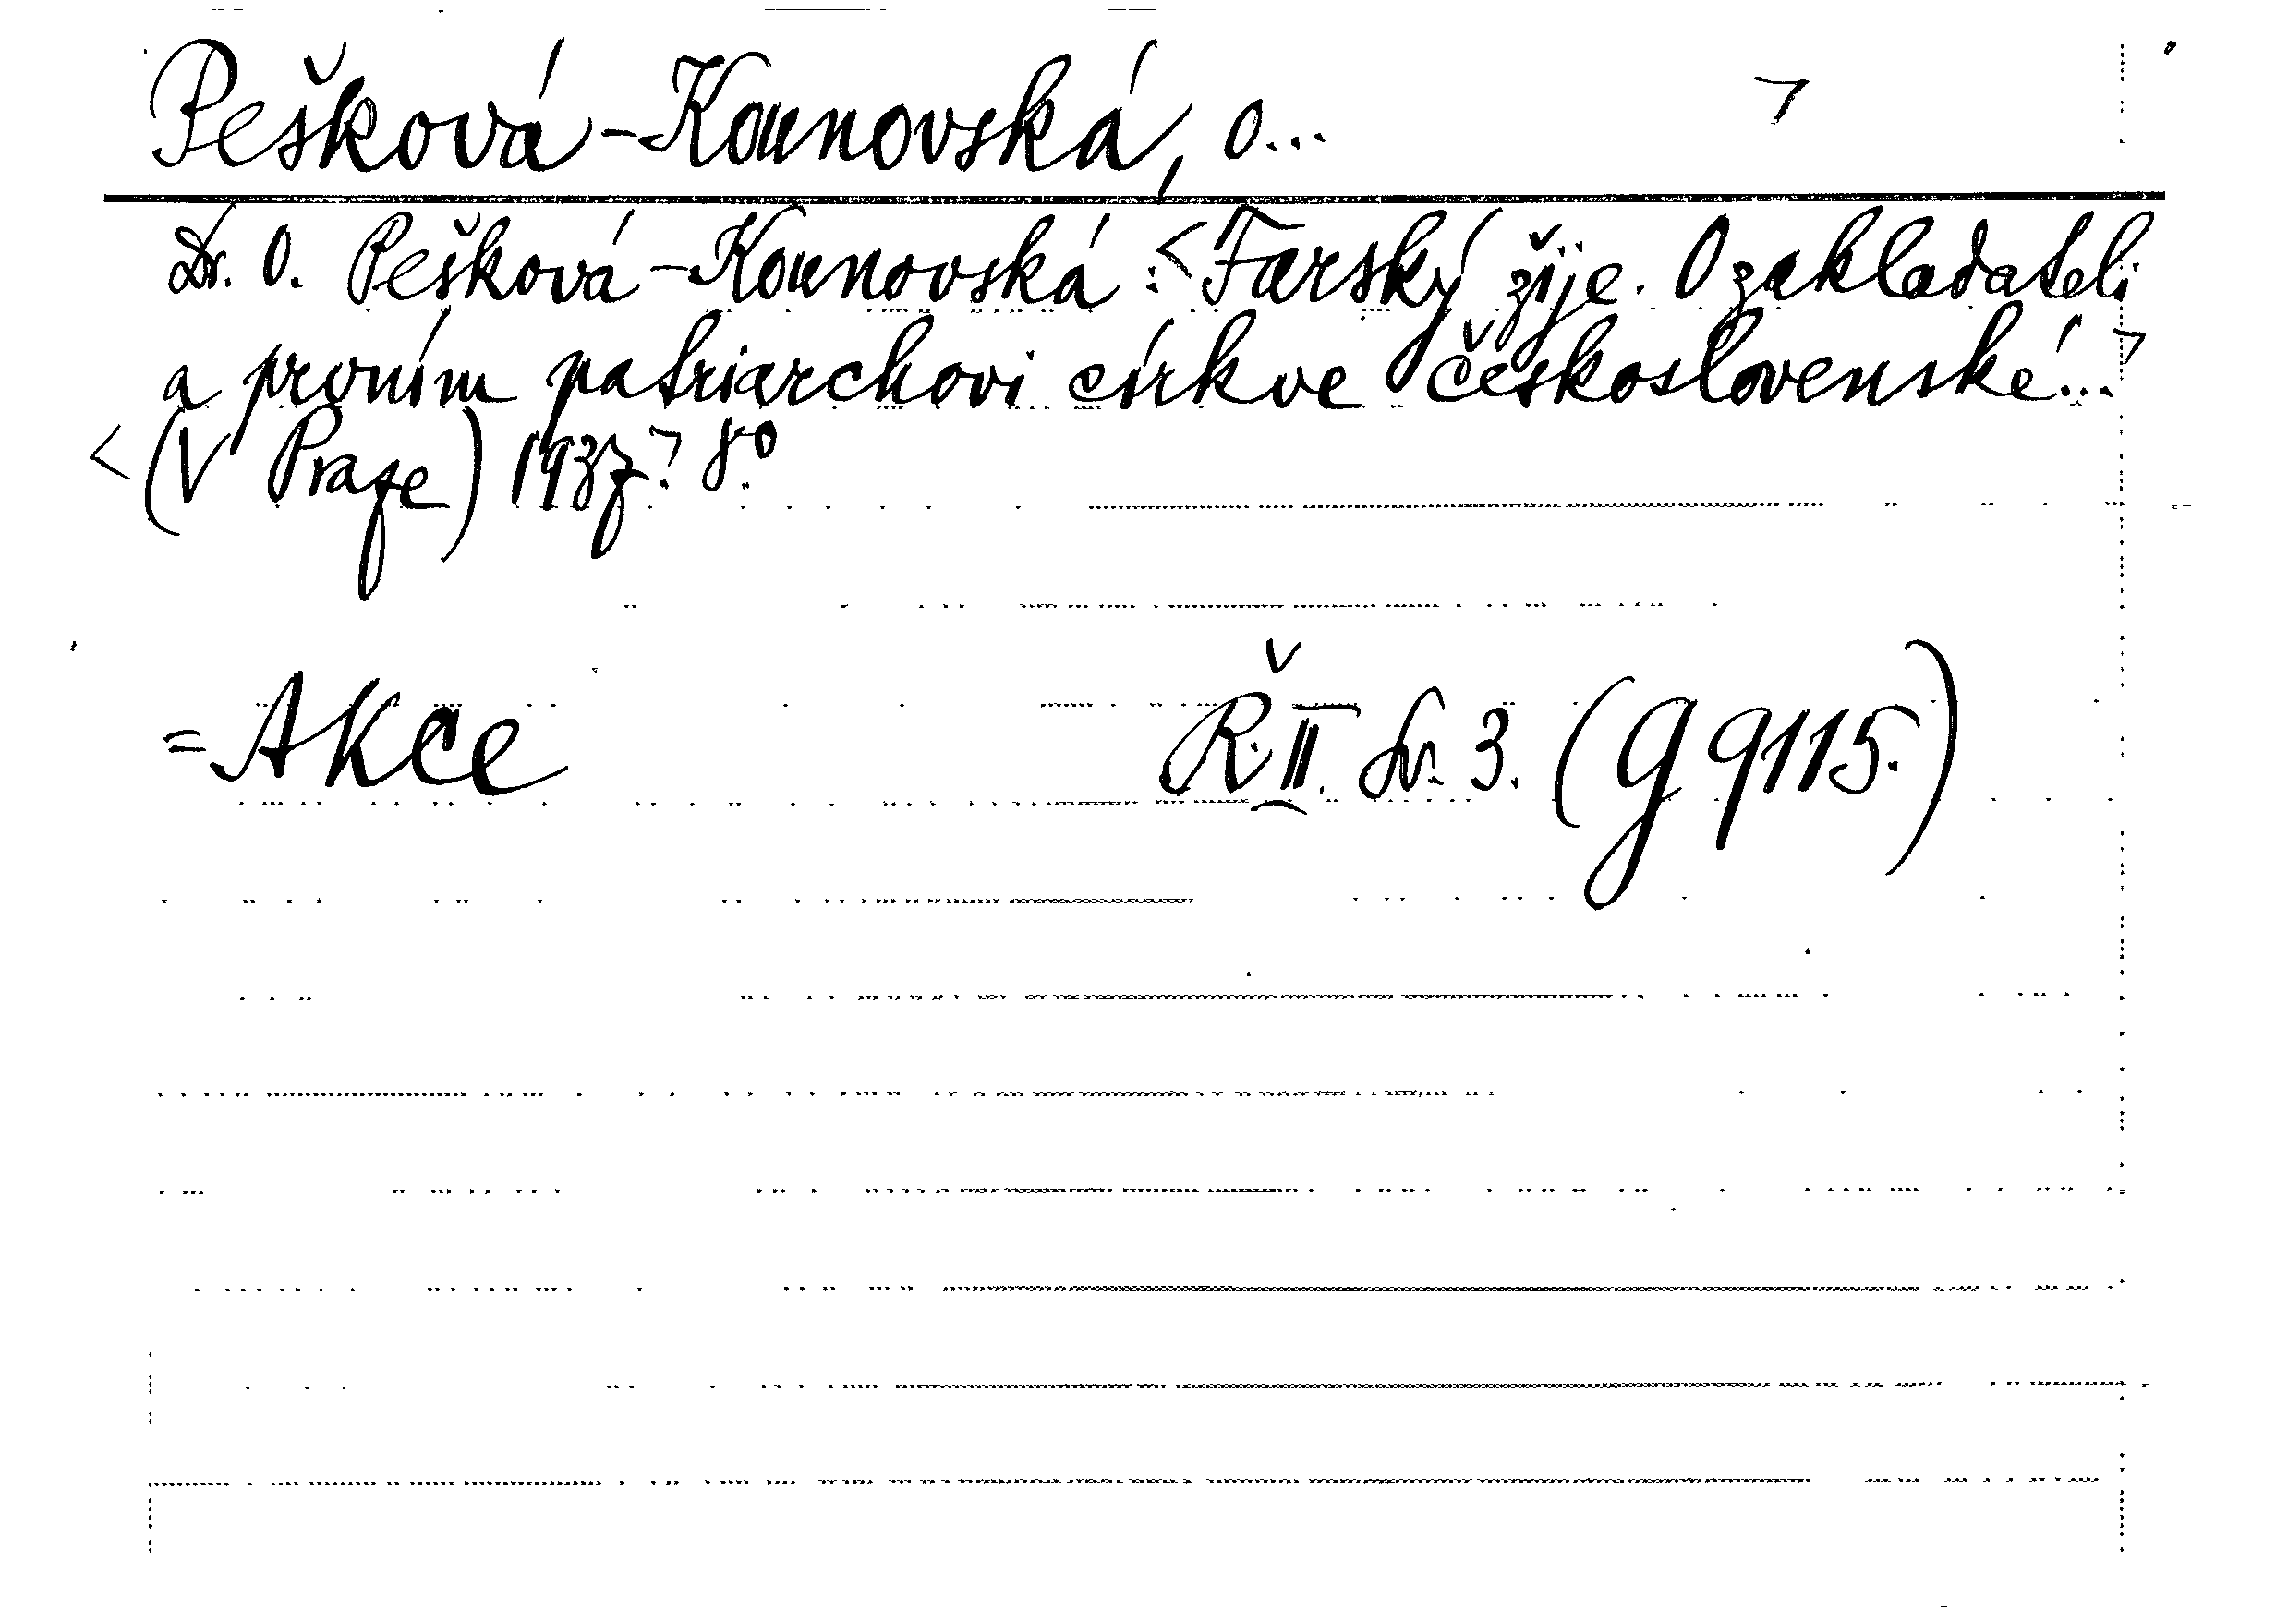 Pešková-Kounovská, O... ¬
Dr. O. Pešková-Kounovská: <Farský žije. O zakladateli
a prvním patriarchovi církve československé...¬
<(V Praze) 1937.¬ 8°.
= Akce Ř. II. Sv. 3. (g 9115.)